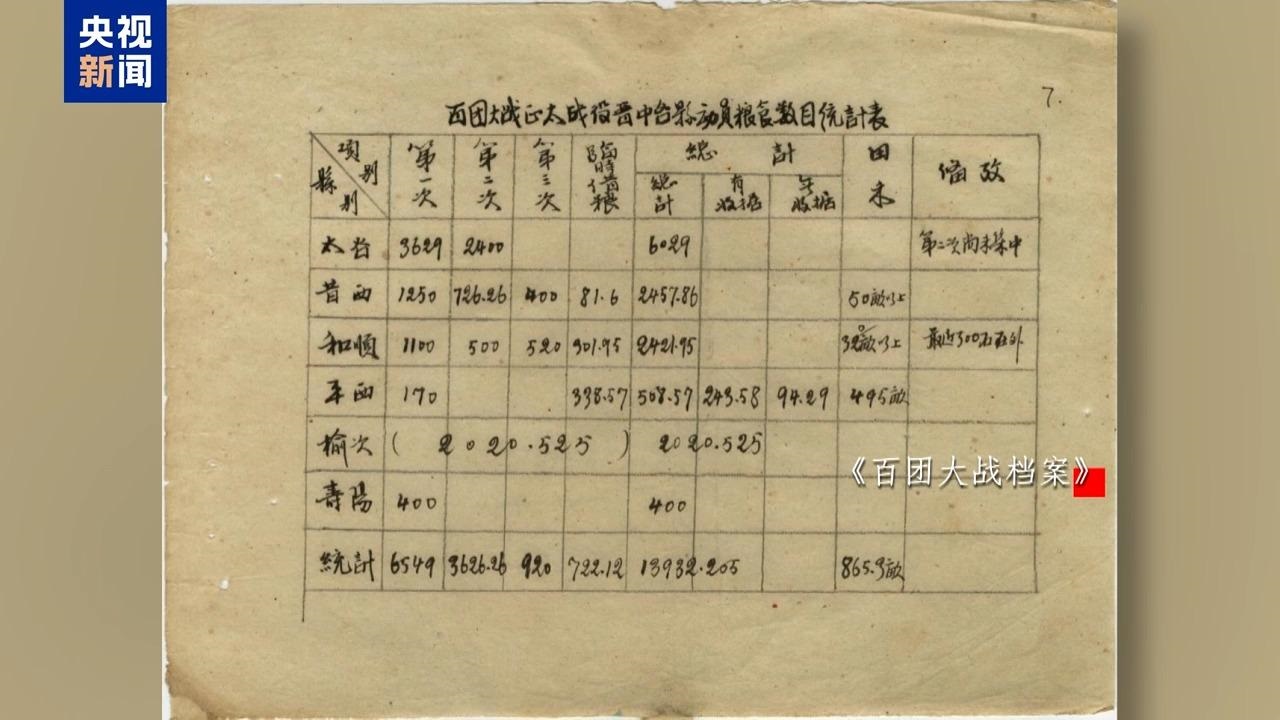 央视
新闻
7.
百团大战正太战役晋中各县动員粮食数目统計表
項別 縣別 第一次 第二次 第三次 臨時借粮 總計 田禾 备考
總計 有收據 無收據
太谷 3629 2400 6029 第二次尚未集中
昔西 1250 726.26 400 81.6 2457.86 50畝以上
和順 1100 500 520 301.95 2421.95 320畝以上 最近300石在外
平西 170 338.57 508.57 243.58 94.29 495畝
榆次 ( 2020.525 ) 2020.525
《百团大战档案》
壽陽 400 400
統計 6549 3626.26 920 722.12 13932.205 865.3畝